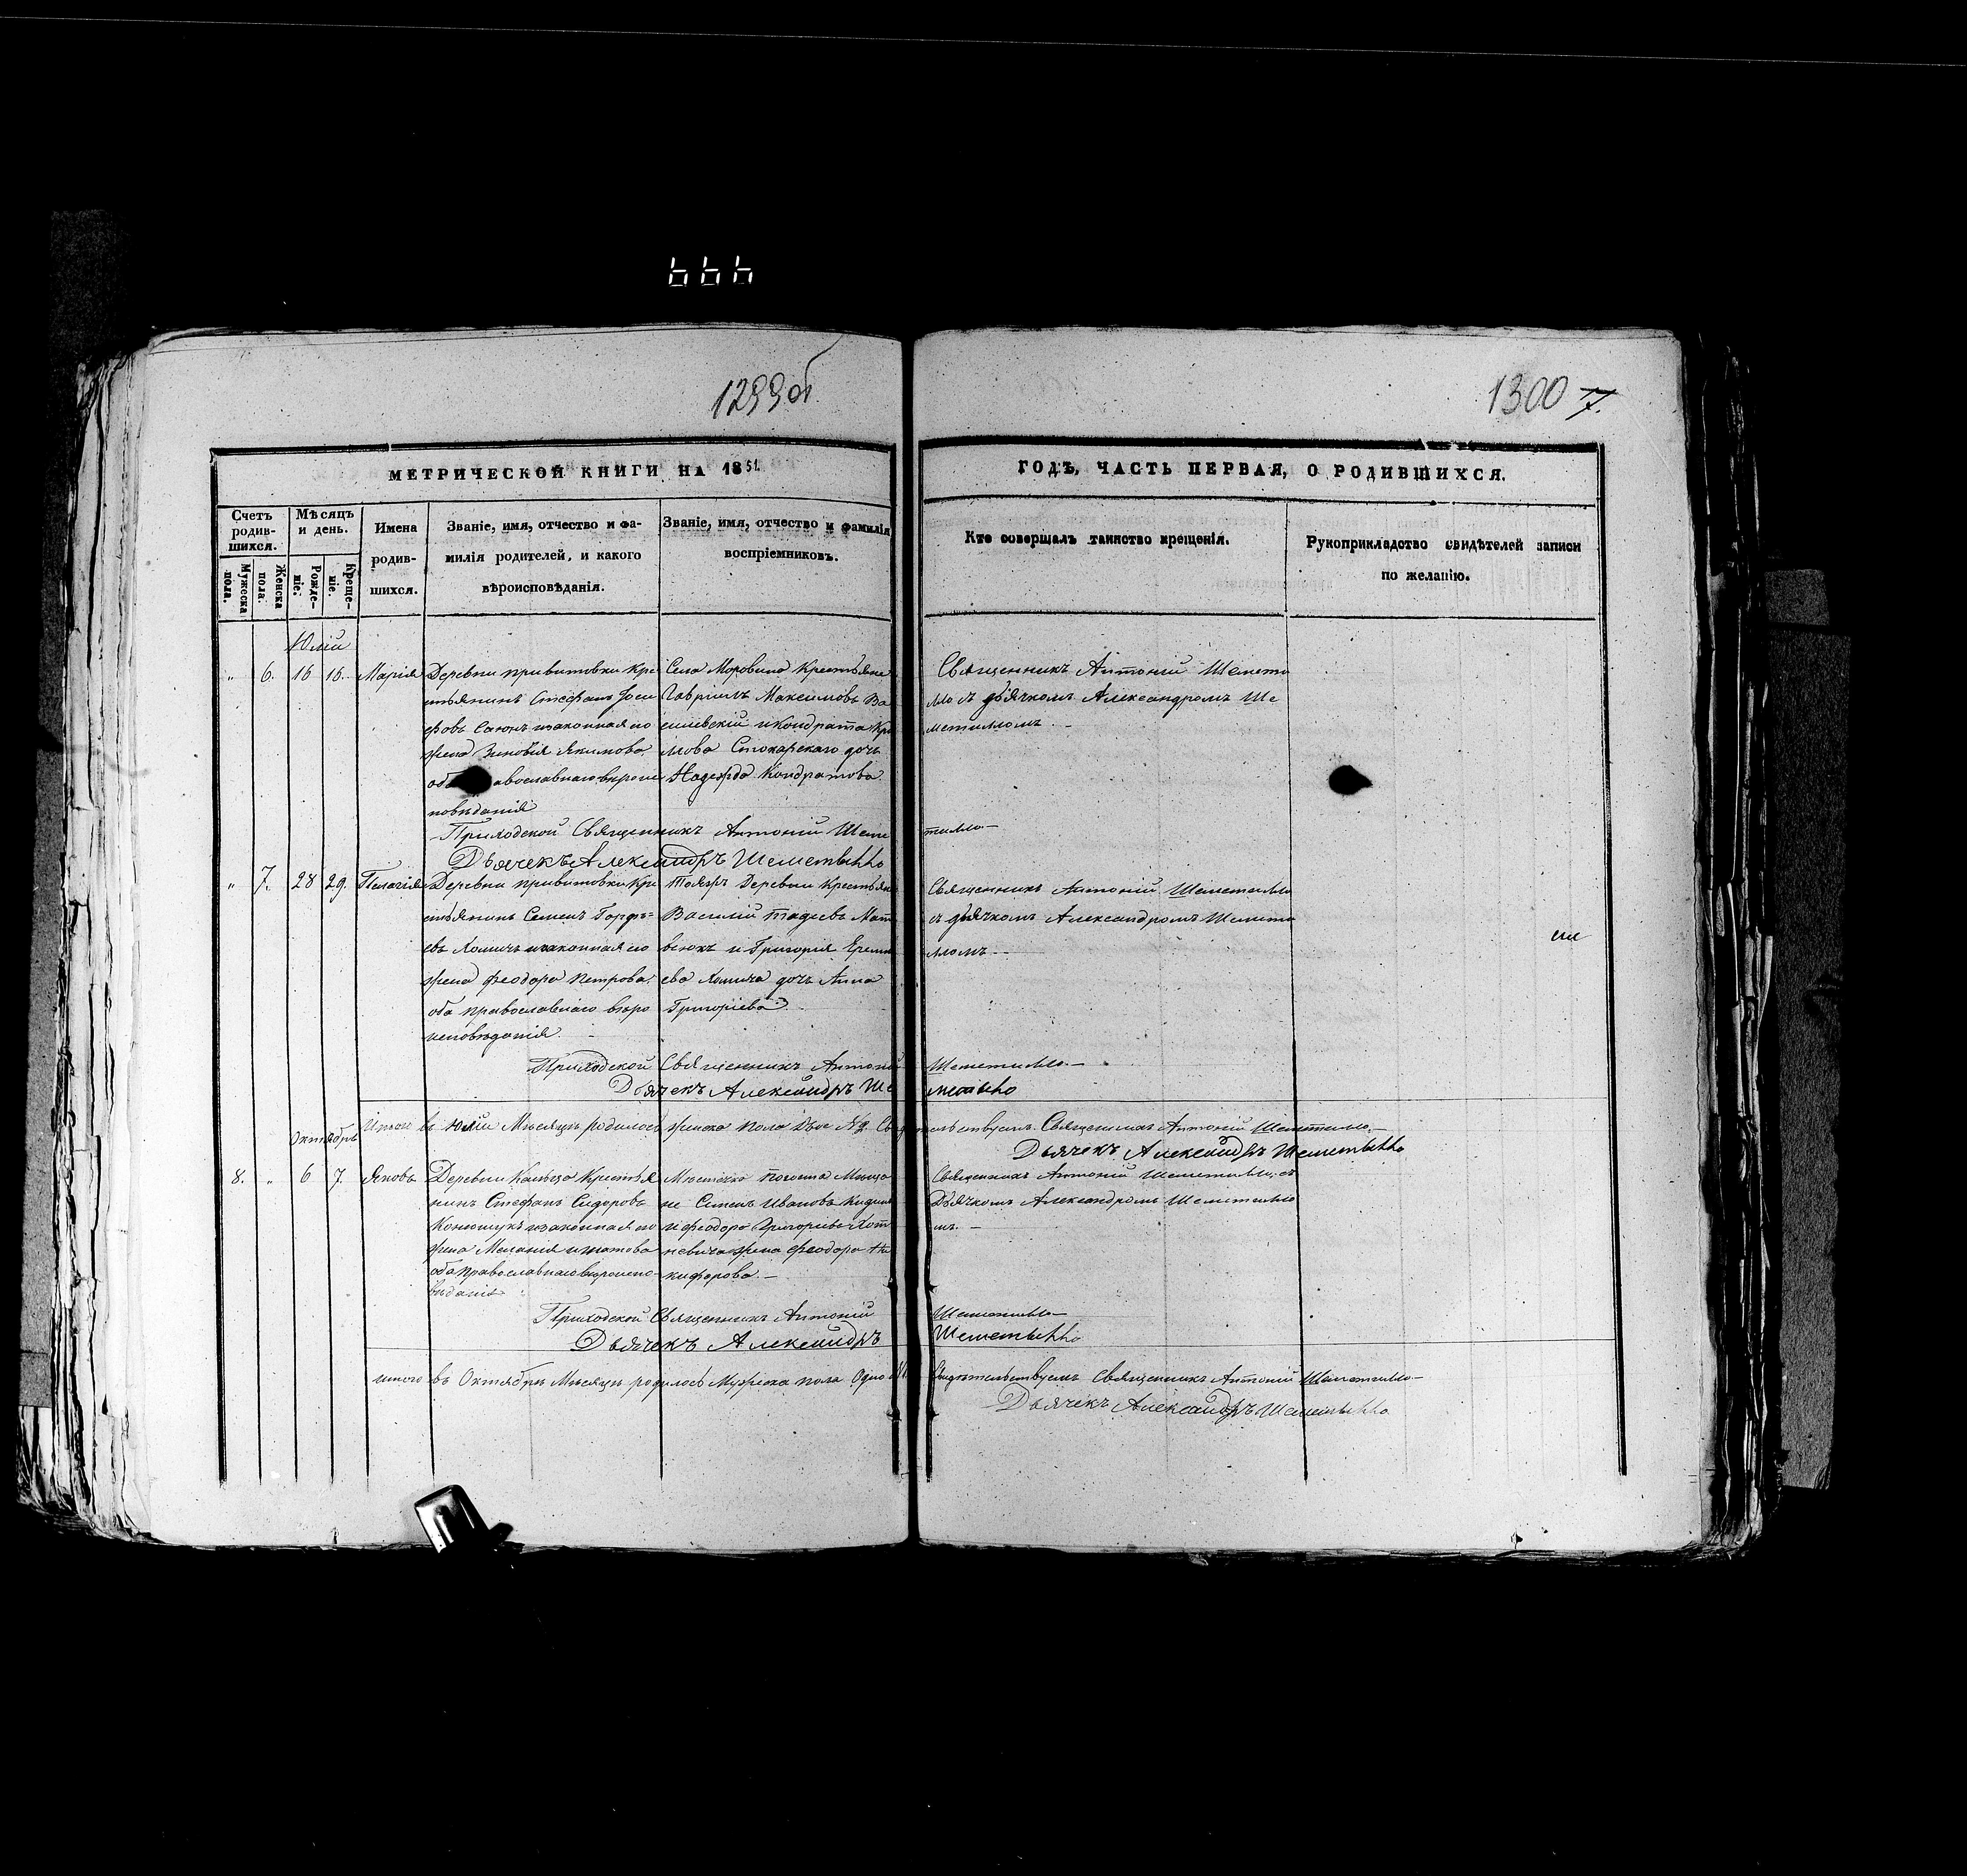 1299об.
1300 7.
МЕТРИЧЕСКОЙ КНИГИ НА 1851.
ГОДЪ, ЧАСТЬ ПЕРВАЯ, О РОДИВШИХСЯ.
Счетъ родив-шихся.
Мужеска пола.
Женска пола.
Мѣсяцъ и день.
Рожде-ніе.
Креще-ніе.
Имена родив-шихся.
Званіе, имя, отчество и фа-
милія родителей, и какого
вѣроисповѣданія.
Званіе, имя, отчество и фамилія
воспріемниковъ.
Кто совершалъ таинство крещенія.
Рукоприкладство свидѣтелей записи
по желанію.
Юлій
" 6. 16 16. Марія
Деревни привитовки Кре
стьянинъ Стефанъ Іоси
фовъ Саюкъ изаконная его
жена Зиновія Якимова
оба авославнаго вѣроис
повѣданія
Села Моровина Крестьяне
Гавріилъ Максимовъ Ва
силевскій и Кондрата Кри
мова Стокарскаго дочь
Надежда Кондратова
Священникъ Антоній Шемети
лло съ дьячкомъ Александромъ Ше
метилломъ. -
Приходской Священникъ Антоній Шеме тилло-
Дьячекъ Александръ Шеметылло
" 7. 28 29. Пелагія
Деревни привитовки Кре
стьянинъ Семенъ Горфѣ=
евъ Хомичъ изаконная его
жена Феодора Петрова.
оба православнаго вѣро
исповѣданія. -
Тоежъ Деревни Крестьяне
Василій Тадеевъ Мат
веюкъ и Григорія Ереми
ева Хомича дочь Анна
Григоріева. -
Священникъ Антоній Шеметилло
съ дьячкомъ Александромъ Шемети
лломъ. -
Приходской Священникъ Антоній Шеметилло. -
Дьячекъ Александръ Ше метылло
Итого въ Юліи Мѣсяцѣ родилось женска пола Двѣ №2. Свидѣтельствуемъ Священникъ Антоній Шеметилло. -
Дьячекъ Александръ Шеметылло
Октябрь
8. " 6 7. Яковъ
Деревни Кольцо Крестья
нинъ Стефанъ Сидоровъ
Конюшукъ изаконная его
жена Меланія Игнатова
оба православнаго вѣроиспо-
вѣданія
Мѣстечка Погоста Мѣща
не Семенъ Ивановъ
и Феодора Григорьева
невича жена Феодора Ни
кифорова -
Священникъ Антоній Шеметилло, съ
Дьячкомъ Александромъ Шеметилло
мъ. -
Приходской Священникъ Антоній Шеметилло-
Дьячекъ Александръ Шеметылло
итого въ Октябрѣ Мѣсяцѣ родилось Мужеска пола Одно №1. Свидѣтельствуемъ Священникъ Антоній Шеметилло-
Дьячекъ Александръ Шеметылло